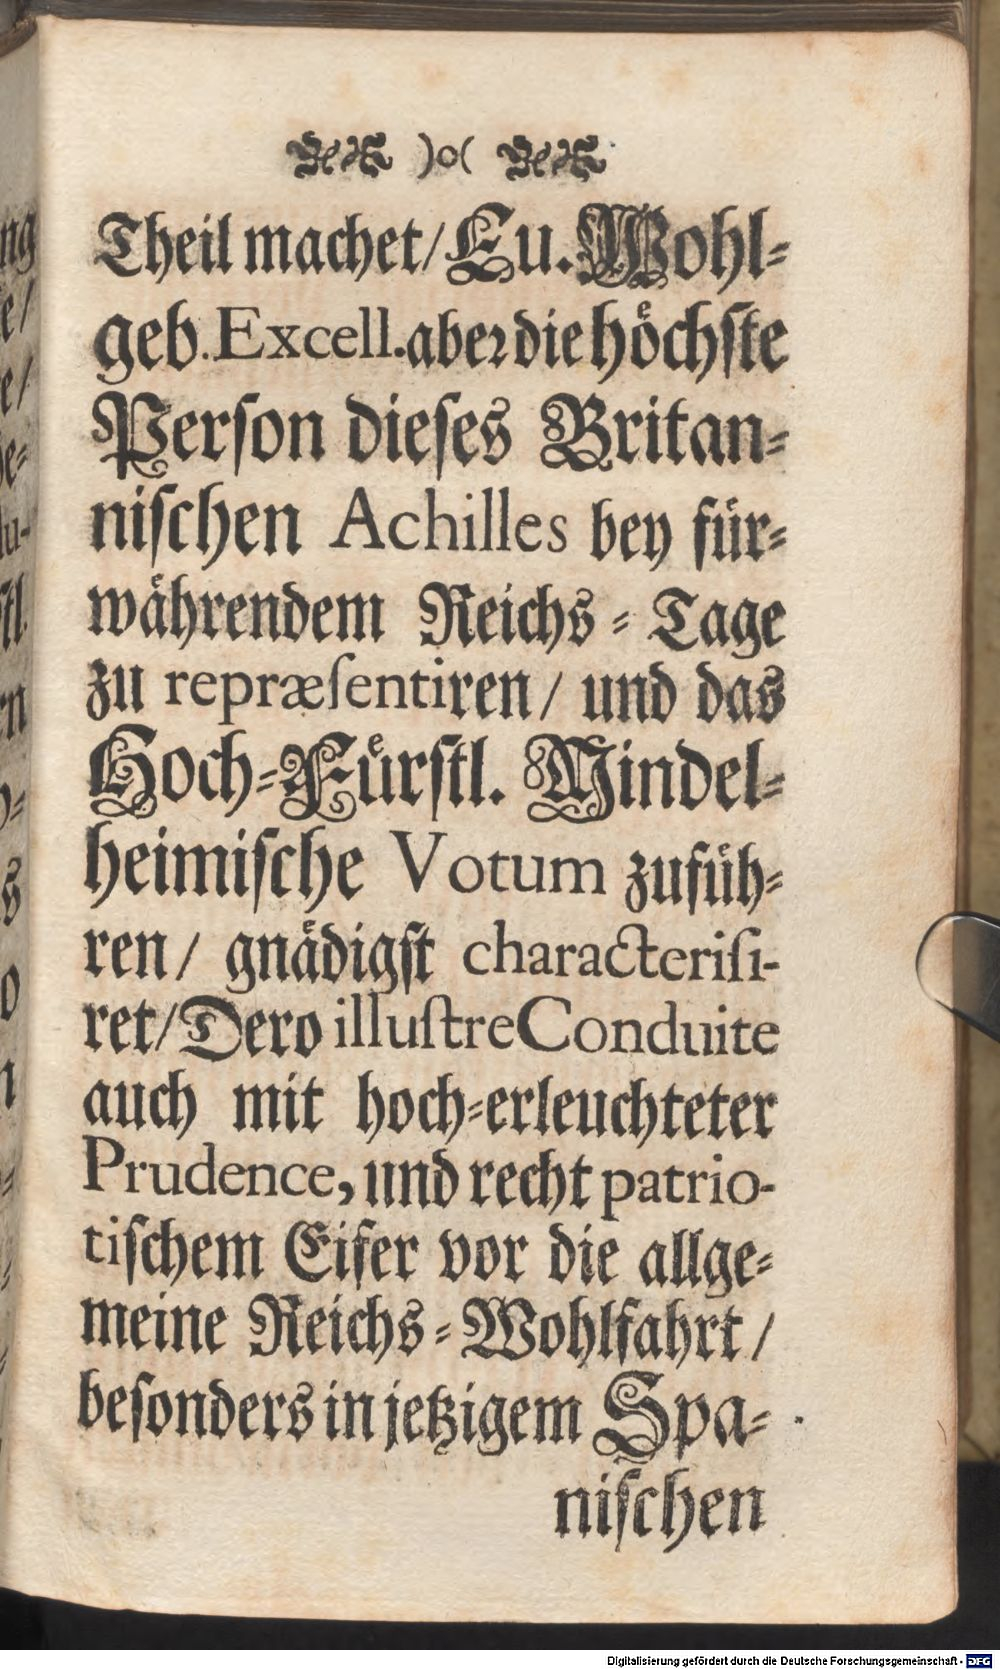 )o(
Theil machet/ Eu. Wohl-
geb. Excell. aber die hoͤchſte
Perſon dieſes Britan-
niſchen Achilles bey fuͤr-
waͤhrendem Reichs-Tage
zu repræſentiren/ und das
Hoch-Fuͤrſtl. Mindel-
heimiſche Votum zufuͤh-
ren/ gnaͤdigſt characteriſi-
ret/ Dero illuſtre Conduite
auch mit hoch-erleuchteter
Prudence, und recht patrio-
tiſchem Eifer vor die allge-
meine Reichs-Wohlfahrt/
beſonders in jetzigem Spa-
niſchen
Digitalisierung gefördert durch die Deutsche Forschungsgemeinschaft - DFG